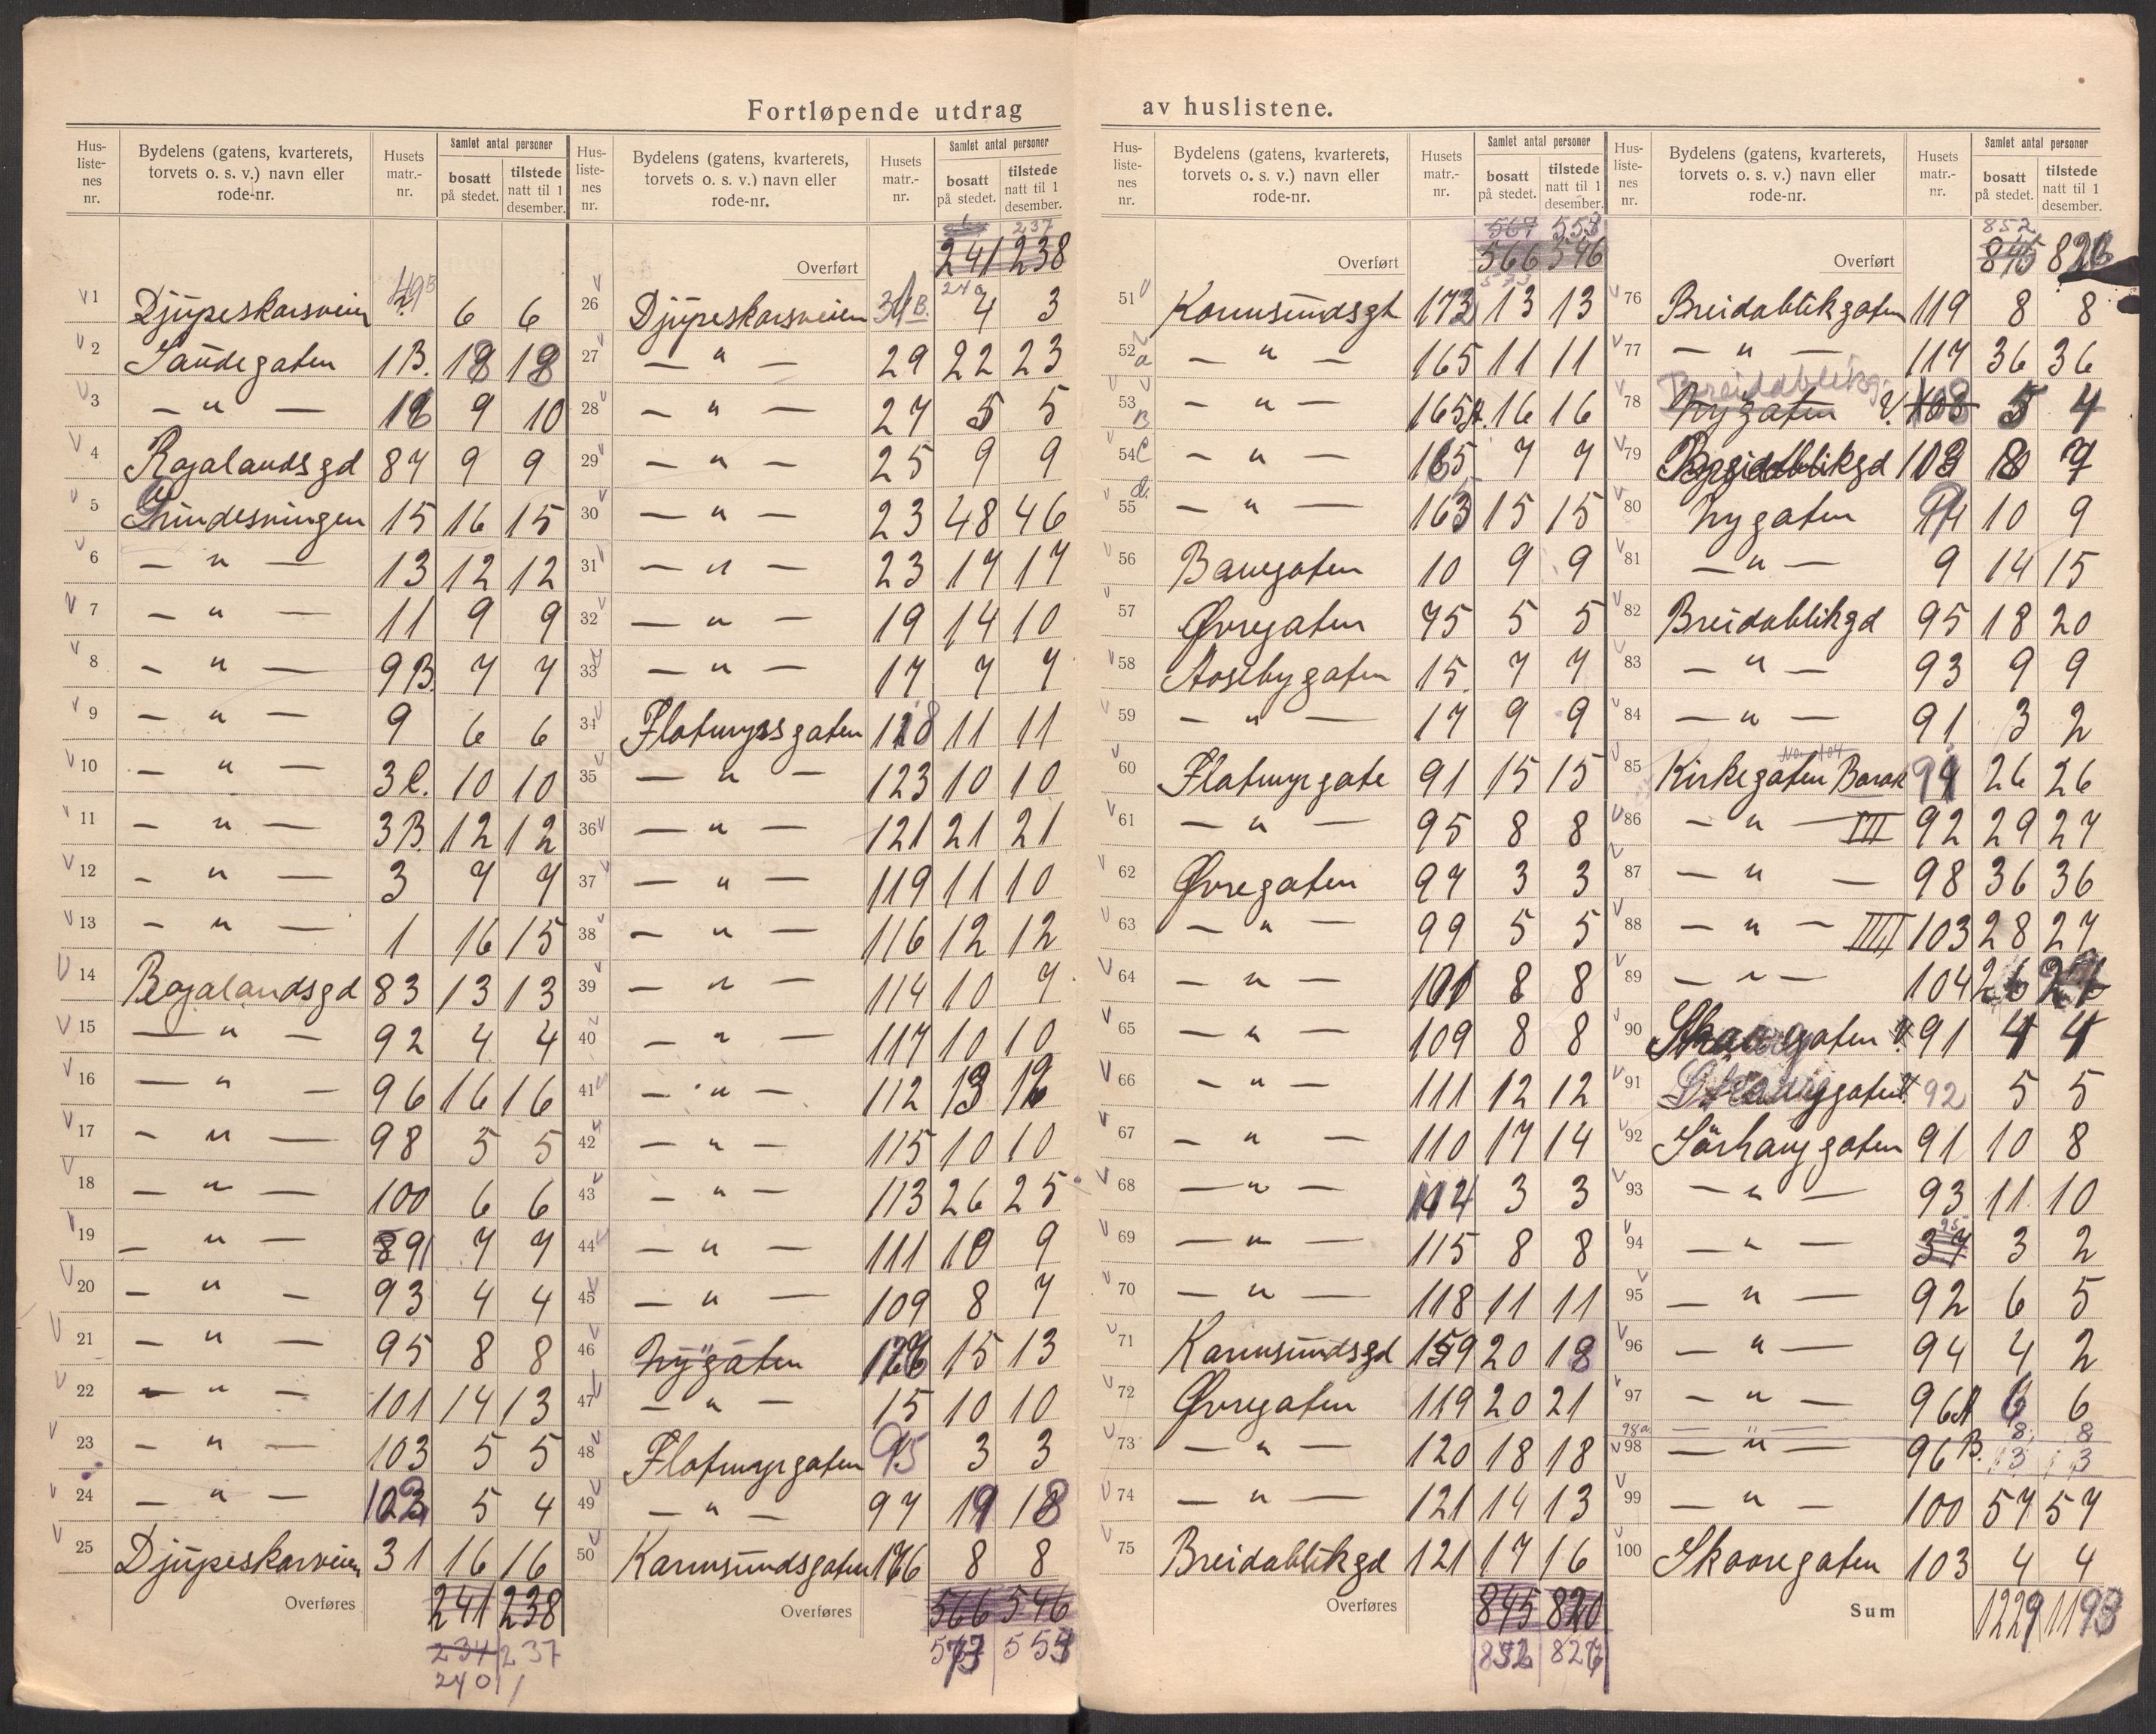 Fortløpende utdrag av huslistene.
Hus-liste-nes nr. | Bydelens (gatens, kvarterets, torvets o. s. v.) navn eller rode-nr. | Husets matr.-nr. | Samlet antal personer bosatt på stedet. | tilstede natt til 1 desember.
1 Djupeskarsveien 6 6
2 Saudegaten 1B. 18 18
3 — " — 9 10
4 Rogalandsgd 87 9 9
5 15 16 15
6 — " — 13 12 12
7 — " — 11 9 9
8 — " — 9B. 7 7
9 — " — 9 6 6
10 — " — 3C. 10 10
11 — " — 3B. 12 12
12 — " — 3 7 7
13 — " — 1 16 15
14 Rogalandsgd 83 13 13
15 — " — 92 4 4
16 — " — 96 16 16
17 — " — 98 5 5
18 — " — 100 6 6
19 — " — 91 7 7
20 — " — 93 4 4
21 — " — 95 8 8
22 — " — 101 14 13
23 — " — 103 5 5
24 — " — 5 4
25 Djupeskarveien 31 16 16
Overføres 241 238
234 237
240
Hus-liste-nes nr. | Bydelens (gatens, kvarterets, torvets o. s. v.) navn eller rode-nr. | Husets matr.-nr. | Samlet antal personer bosatt på stedet. | tilstede natt til 1 desember.
237
Overført 241 238
240
26 Djupeskarsveien 4 3
27 — " — 29 22 23
28 — " — 27 5 5
29 — " — 25 9 9
30 — " — 23 48 46
31 — " — 23 17 17
32 — " — 19 14 10
33 — " — 17 7 7
34 Flotmyrsgaten 118 11 11
35 — " — 123 10 10
36 — " — 121 21 21
37 — " — 119 11 10
38 — " — 116 12 12
39 — " — 114 10 7
40 — " — 117 10 10
41 — " — 112 13
42 — " — 115 10 10
43 — " — 113 26 25
44 — " — 111 10 9
45 — " — 109 8 7
46 Nygaten 15 13
47 — " — 15 10 10
48 Flotmyrgaten 95 3 3
49 — " — 97 19 18
50 Karmsundsgaten 166 8 8
Overføres 566 546
573 553
Hus-liste-nes nr. | Bydelens (gatens, kvarterets, torvets o. s. v.) navn eller rode-nr. | Husets matr.-nr. | Samlet antal personer bosatt på stedet. | tilstede natt til 1 desember.
567 553
Overført 566 546
573
51 Karmsundsgt 173 13 13
52 a — " — 165 11 11
53 B — " — 165 16 16
54 C — " — 165 7 7
55 d. — " — 15 15
56 Banegaten 10 9 9
57 Øvregaten 75 5 5
58 Aosebygaten 15 7 7
59 — " — 17 9 9
60 Flotmyrgate 91 15 15
61 — " — 95 8 8
62 Øvregaten 97 3 3
63 — " — 99 5 5
64 — " — 101 8 8
65 — " — 109 8 8
66 — " — 111 12 12
67 — " — 110 17 14
68 — " — 3 3
69 — " — 115 8 8
70 — " — 118 11 11
71 Karmsundsgd 159 20 18
72 Øvregaten 119 20 21
73 — " — 120 18 18
74 — " — 121 14 13
75 Breidablikgd 121 17 16
Overføres 845 820
852 827
Hus-liste-nes nr. | Bydelens (gatens, kvarterets, torvets o. s. v.) navn eller rode-nr. | Husets matr.-nr. | Samlet antal personer bosatt på stedet. | tilstede natt til 1 desember.
852
Overført 845 826
76 Breidablikgaten 119 8 8
77 — " — 117 36 36
Breidablikg.
78 Nygaten 108 5 4
79 Breidablikgd 8 7
80 Nygaten 10 9
81 — " — 9 14 15
82 Breidablikgd 95 18 20
83 — " — 93 9 9
84 — " — 91 3 2
85 Kirkegaten Barak 91 26 26
86 — " — III 92 29 27
87 — " — 98 36 36
88 — " — IIII 103 28 27
89 — " — 104 26
90 Skaaregaten 91 4 4
91 92 5 5
92 Sörhauggaten 91 10 8
93 — " — 93 11 10
95
94 — " — 37 3 2
95 — " — 92 6 5
96 — " — 94 4 2
97 — " — 96A 6 6
98a — " — 8 8
98 — " — 96B. 13 13
99 — " — 100 57 57
100 Skaaregaten 103 4 4
Sum 1229 1193